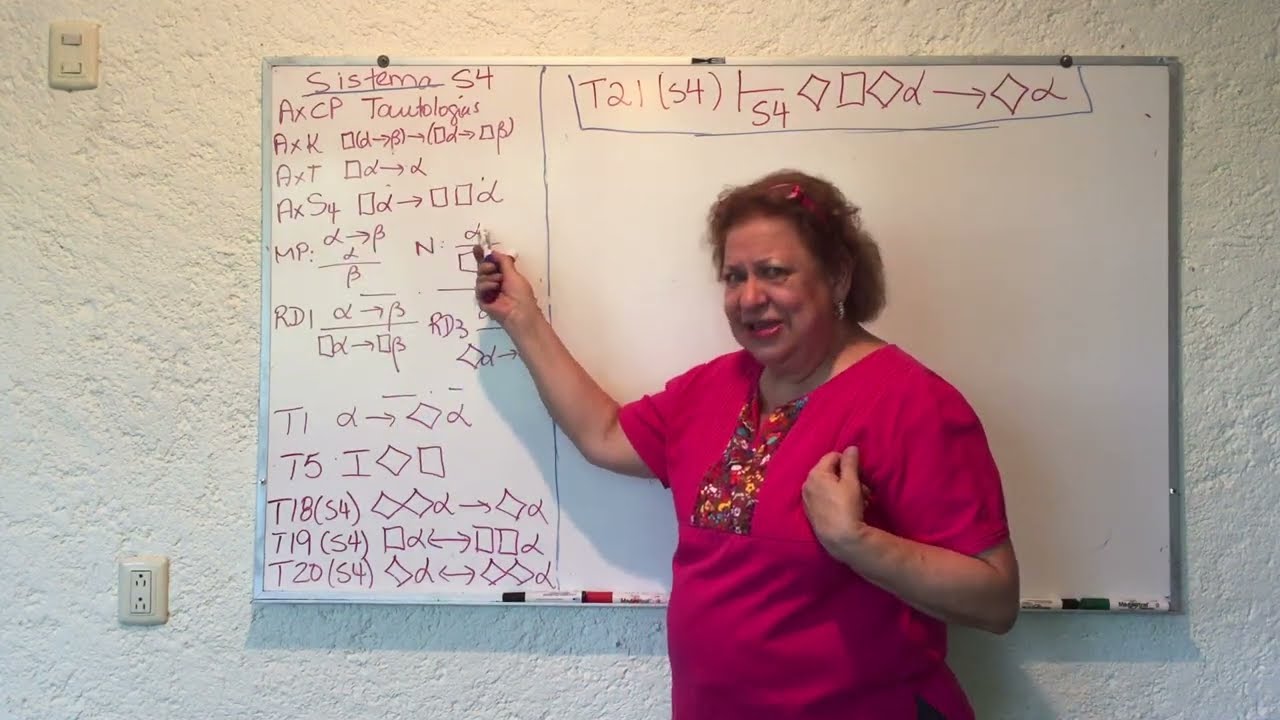 Sistema S4
AxCP Tautologias
AxK □(α→β)→(□α→□β)
AxT □α→α
AxS4 □α→□□α
MP: α→β
α
β
N: α
□
RD1 α→β
□α→□β
RD3
◇α→
T1 α→◇α
T5 I◇□
T18(S4) ◇◇α→◇α
T19(S4) □α↔□□α
T20(S4) ◇α↔◇◇α
T21(S4) ⊢S4 ◇□◇α→◇α